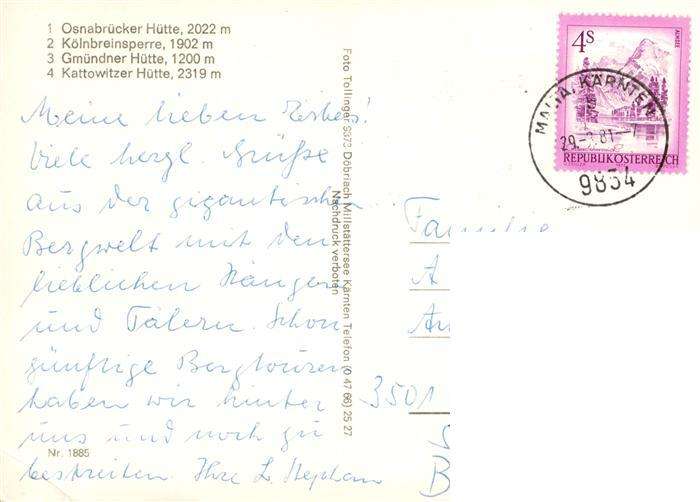 1 Osnabrücker Hütte, 2022 m
2 Kölnbreinsperre, 1902 m
3 Gmündner Hütte, 1200 m
4 Kattowitzer Hütte, 2319 m
Meine lieben
Viele herzl. Grüße
aus der gigantischen
Bergwelt mit den
lieblichen Hängen
und Tälern. Schon
günftige Bergtouren
haben wir hinter
uns und noch zu
bestreiten. Ihre L. Stephan
Nr. 1885
Foto Tollinger 9873 Döbriach Millstättersee Kärnten Telefon (0 47 66) 25 27
Nachdruck verboten
4S
ALMSEE
REPUBLIK ÖSTERREICH
MALTA, KÄRNTEN
9854
Familie
A
3501
B